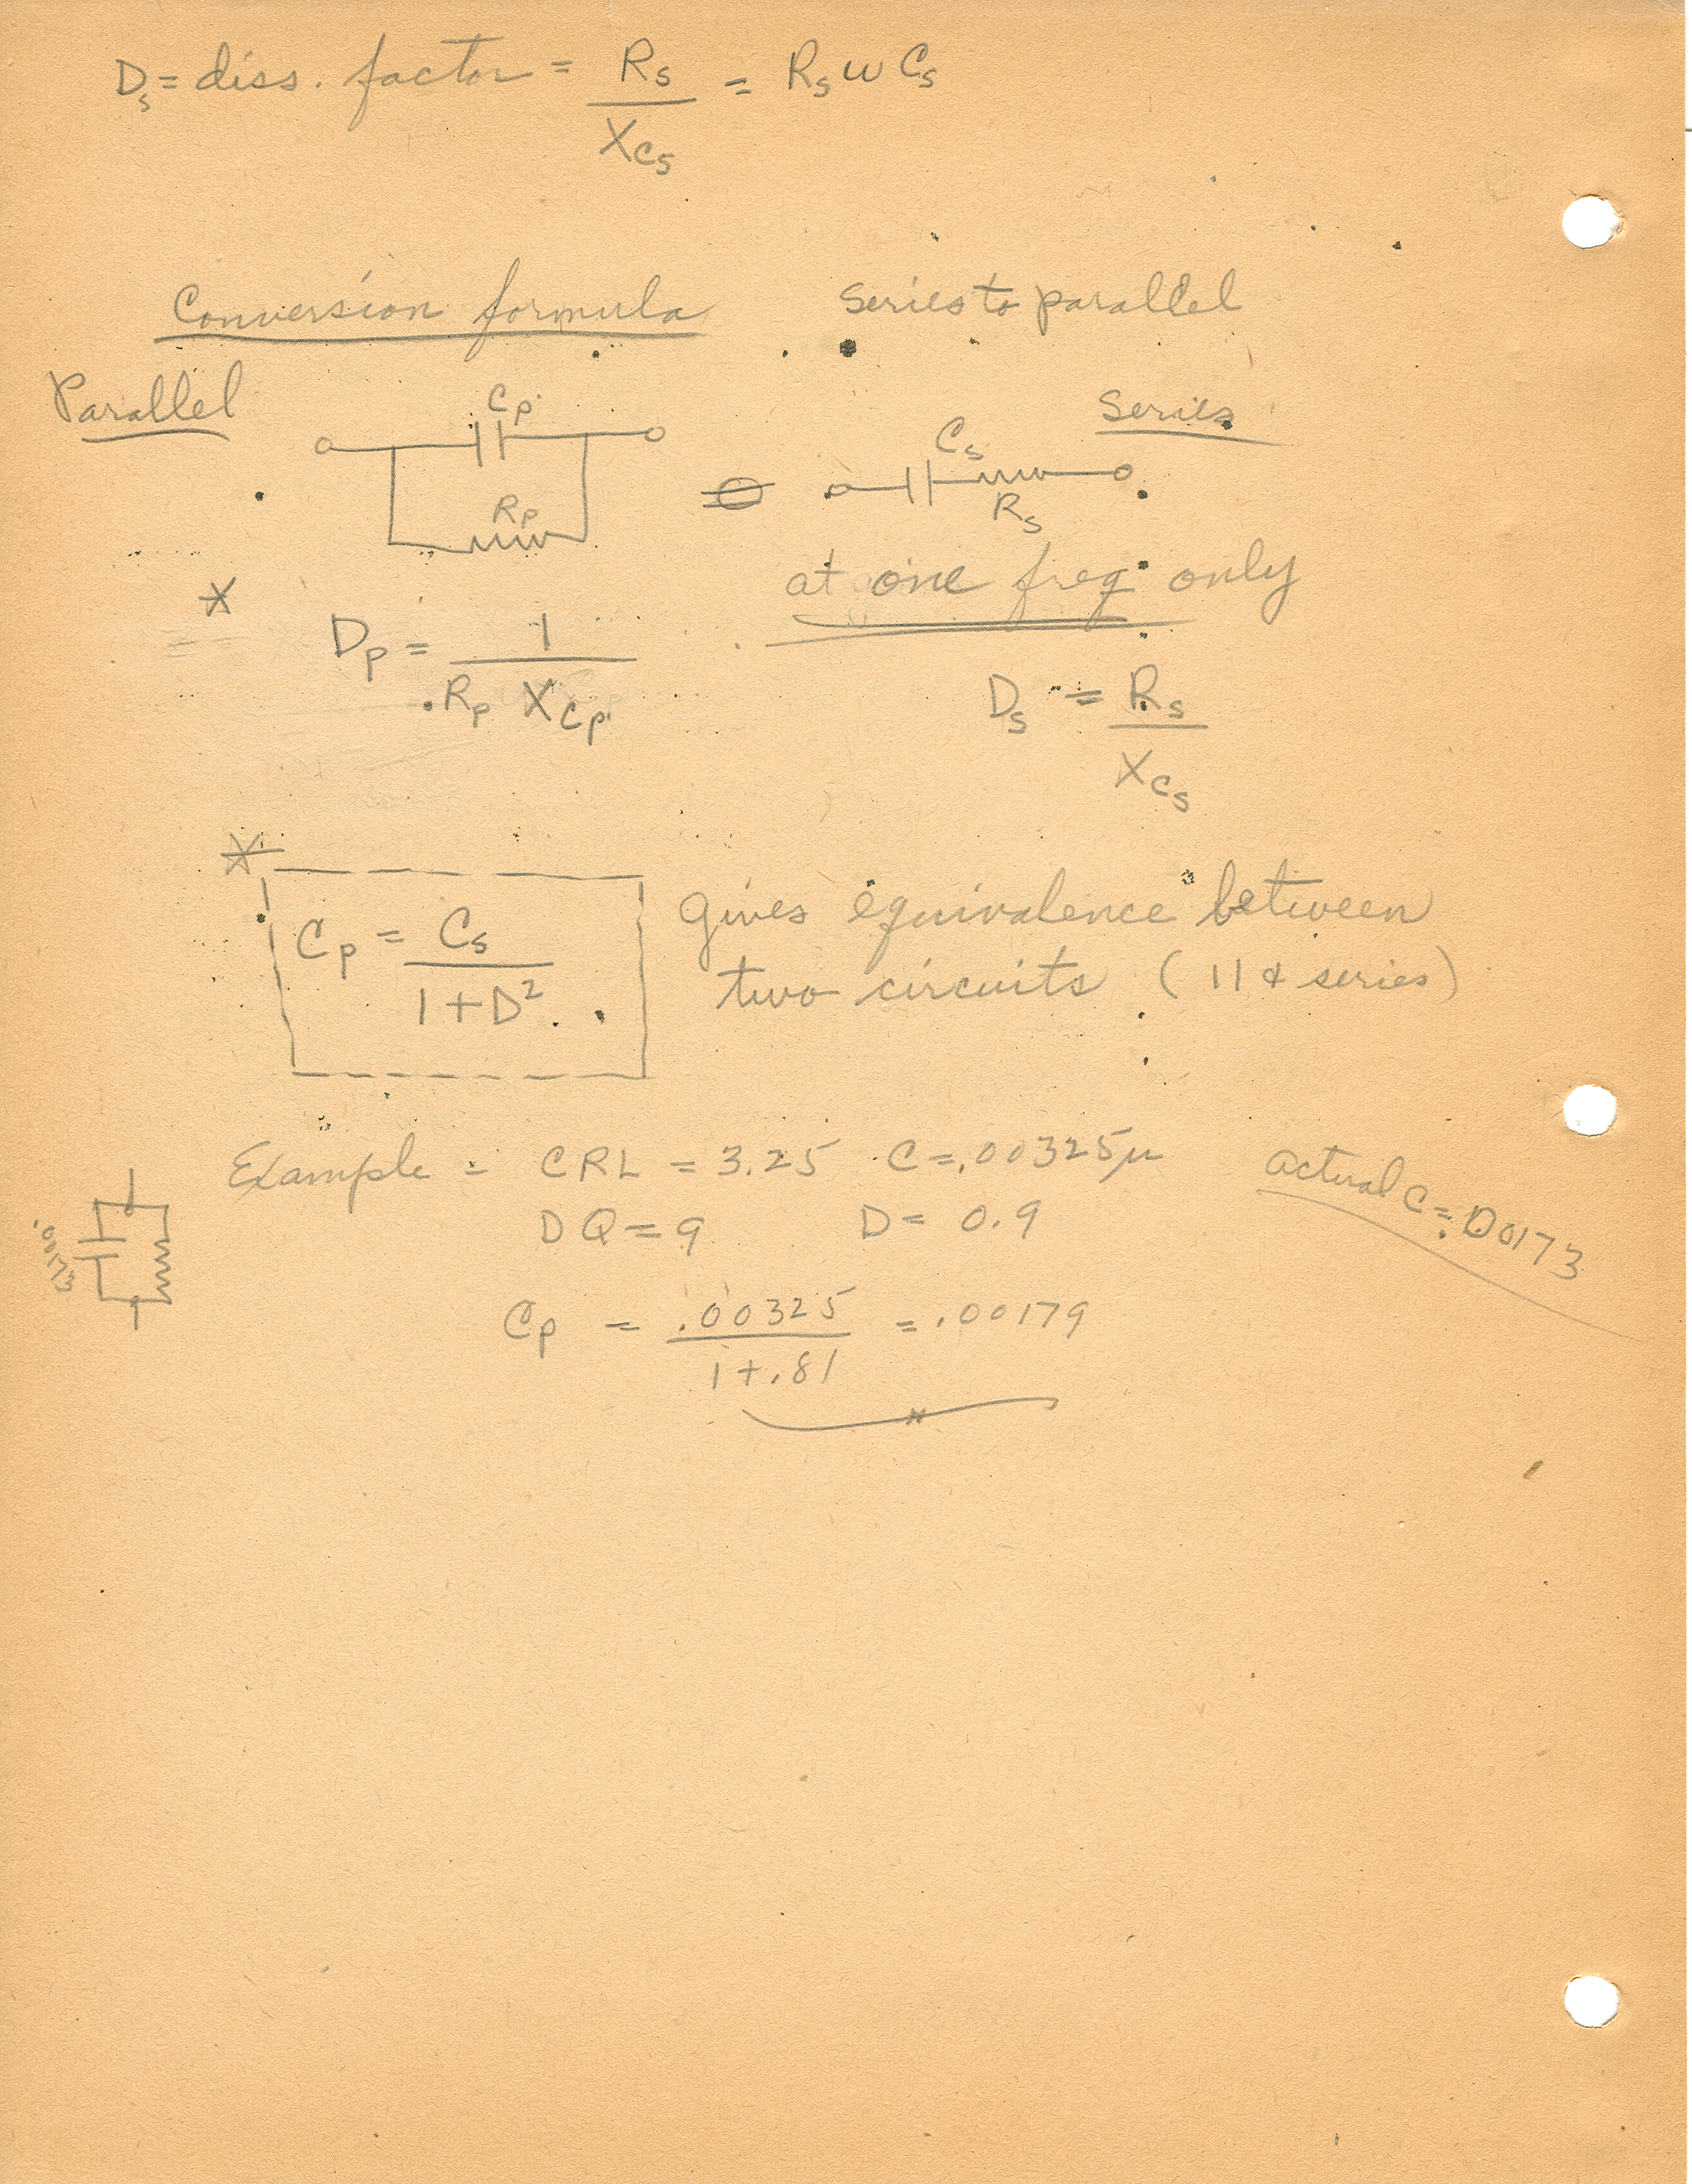 Ds = diss. factor = Rs / Xcs = Rs ω Cs
Conversion formula series to parallel
Parallel
Cp
Rp
Series
Cs
Rs
at one freq only
* Dp = 1 / Rp Xcp
Ds = Rs / Xcs
* Cp = Cs / 1+D²
gives equivalence between
two circuits (11 & series)
Example = CRL = 3.25 C=.00325μ
DQ = 9 D = 0.9
actual C = .00173
.00173
Cp = .00325 / 1+.81 = .00179